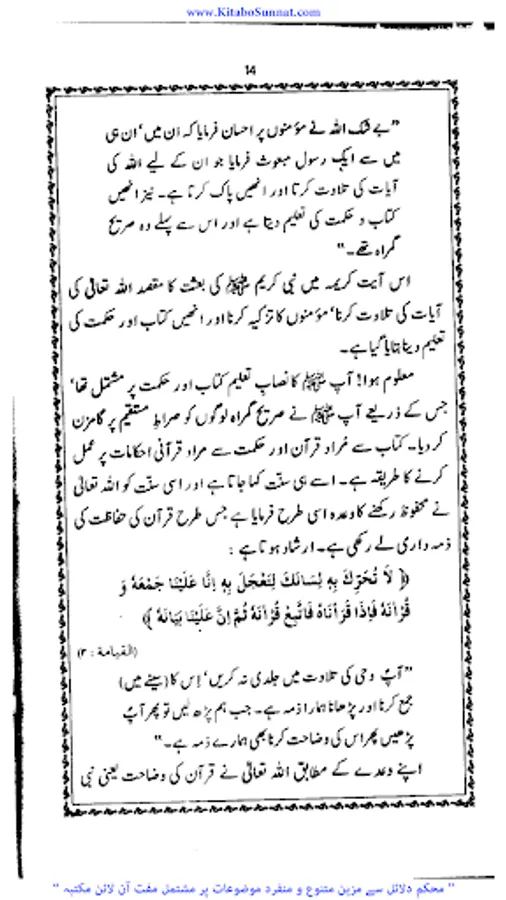 www.KitaboSunnat.com
14
"بے شک اللہ نے مؤمنوں پر احسان فرمایا کہ ان میں' ان ہی
میں سے ایک رسول مبعوث فرمایا جو ان کے لیے اللہ کی
آیات کی تلاوت کرتا اور انھیں پاک کرتا ہے۔ نیز انھیں
کتاب و حکمت کی تعلیم دیتا ہے اور اس سے پہلے وہ صریح
گمراہ تھے۔"
اس آیت کریمہ میں نبی کریم ﷺ کی بعثت کا مقصد اللہ تعالیٰ کی
آیات کی تلاوت کرنا' مؤمنوں کا تزکیہ کرنا اور انھیں کتاب اور حکمت کی
تعلیم دینا بتایا گیا ہے۔
معلوم ہوا! آپ ﷺ کا نصابِ تعلیم کتاب اور حکمت پر مشتمل تھا'
جس کے ذریعے آپ ﷺ نے صریح گمراہ لوگوں کو صراطِ مستقیم پر گامزن
کر دیا۔ کتاب سے مُراد قرآن اور حکمت سے مراد قرآنی احکامات پر عمل
کرنے کا طریقہ ہے۔ اسے ہی سنّت کہا جاتا ہے اور اسی سنّت کو اللہ تعالیٰ
نے محفوظ رکھنے کا وعدہ اسی طرح فرمایا ہے جس طرح قرآن کی حفاظت کی
ذمہ داری لے رکھی ہے۔ ارشاد ہوتا ہے :
﴿ لَا تُحَرِّكْ بِهِ لِسَانَكَ لِتَعْجَلَ بِهِ اِنَّا عَلَيْنَا جَمْعَهُ وَ
قُرْاٰنَهُ فَاِذَا قَرَاْنَاهُ فَاتَّبِعْ قُرْاٰنَهُ ثُمَّ اِنَّ عَلَيْنَا بَيَانَهُ ﴾
(القيامة : ٣)
"آپؐ وحی کی تلاوت میں جلدی نہ کریں' اِس کا (سینے میں)
جمع کرنا اور پڑھانا ہمارا ذمہ ہے۔ جب ہم پڑھ لیں تو پھر آپؐ
پڑھیں پھر اس کی وضاحت کرنا بھی ہمارے ذمہ ہے۔"
اپنے وعدے کے مطابق اللہ تعالیٰ نے قرآن کی وضاحت یعنی نبی
" محکم دلائل سے مزین متنوع و منفرد موضوعات پر مشتمل مفت آن لائن مکتبہ "